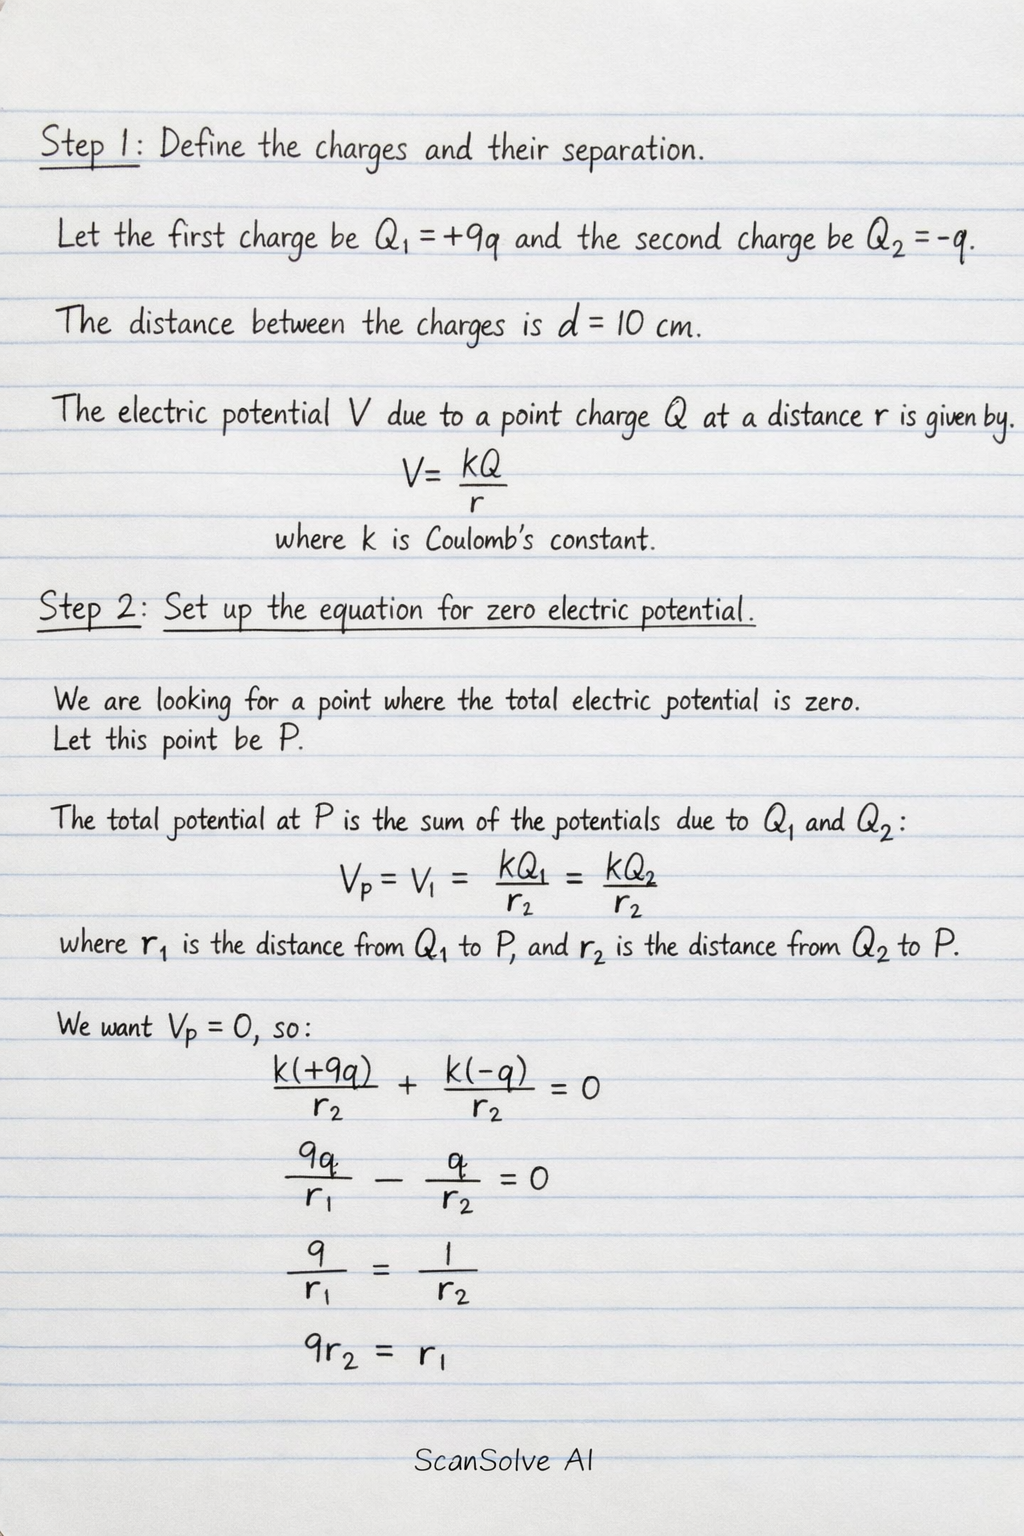 Step 1: Define the charges and their separation.
Let the first charge be Q₁ = +9q and the second charge be Q₂ = -q.
The distance between the charges is d = 10 cm.
The electric potential V due to a point charge Q at a distance r is given by.
V = kQ/r
where k is Coulomb's constant.
Step 2: Set up the equation for zero electric potential.
We are looking for a point where the total electric potential is zero.
Let this point be P.
The total potential at P is the sum of the potentials due to Q₁ and Q₂:
Vₚ = V₁ = kQ₁/r₂ = kQ₂/r₂
where r₁ is the distance from Q₁ to P, and r₂ is the distance from Q₂ to P.
We want Vₚ = 0, so:
k(+9q)/r₂ + k(-q)/r₂ = 0
9q/r₁ — q/r₂ = 0
9/r₁ = 1/r₂
9r₂ = r₁
ScanSolve AI